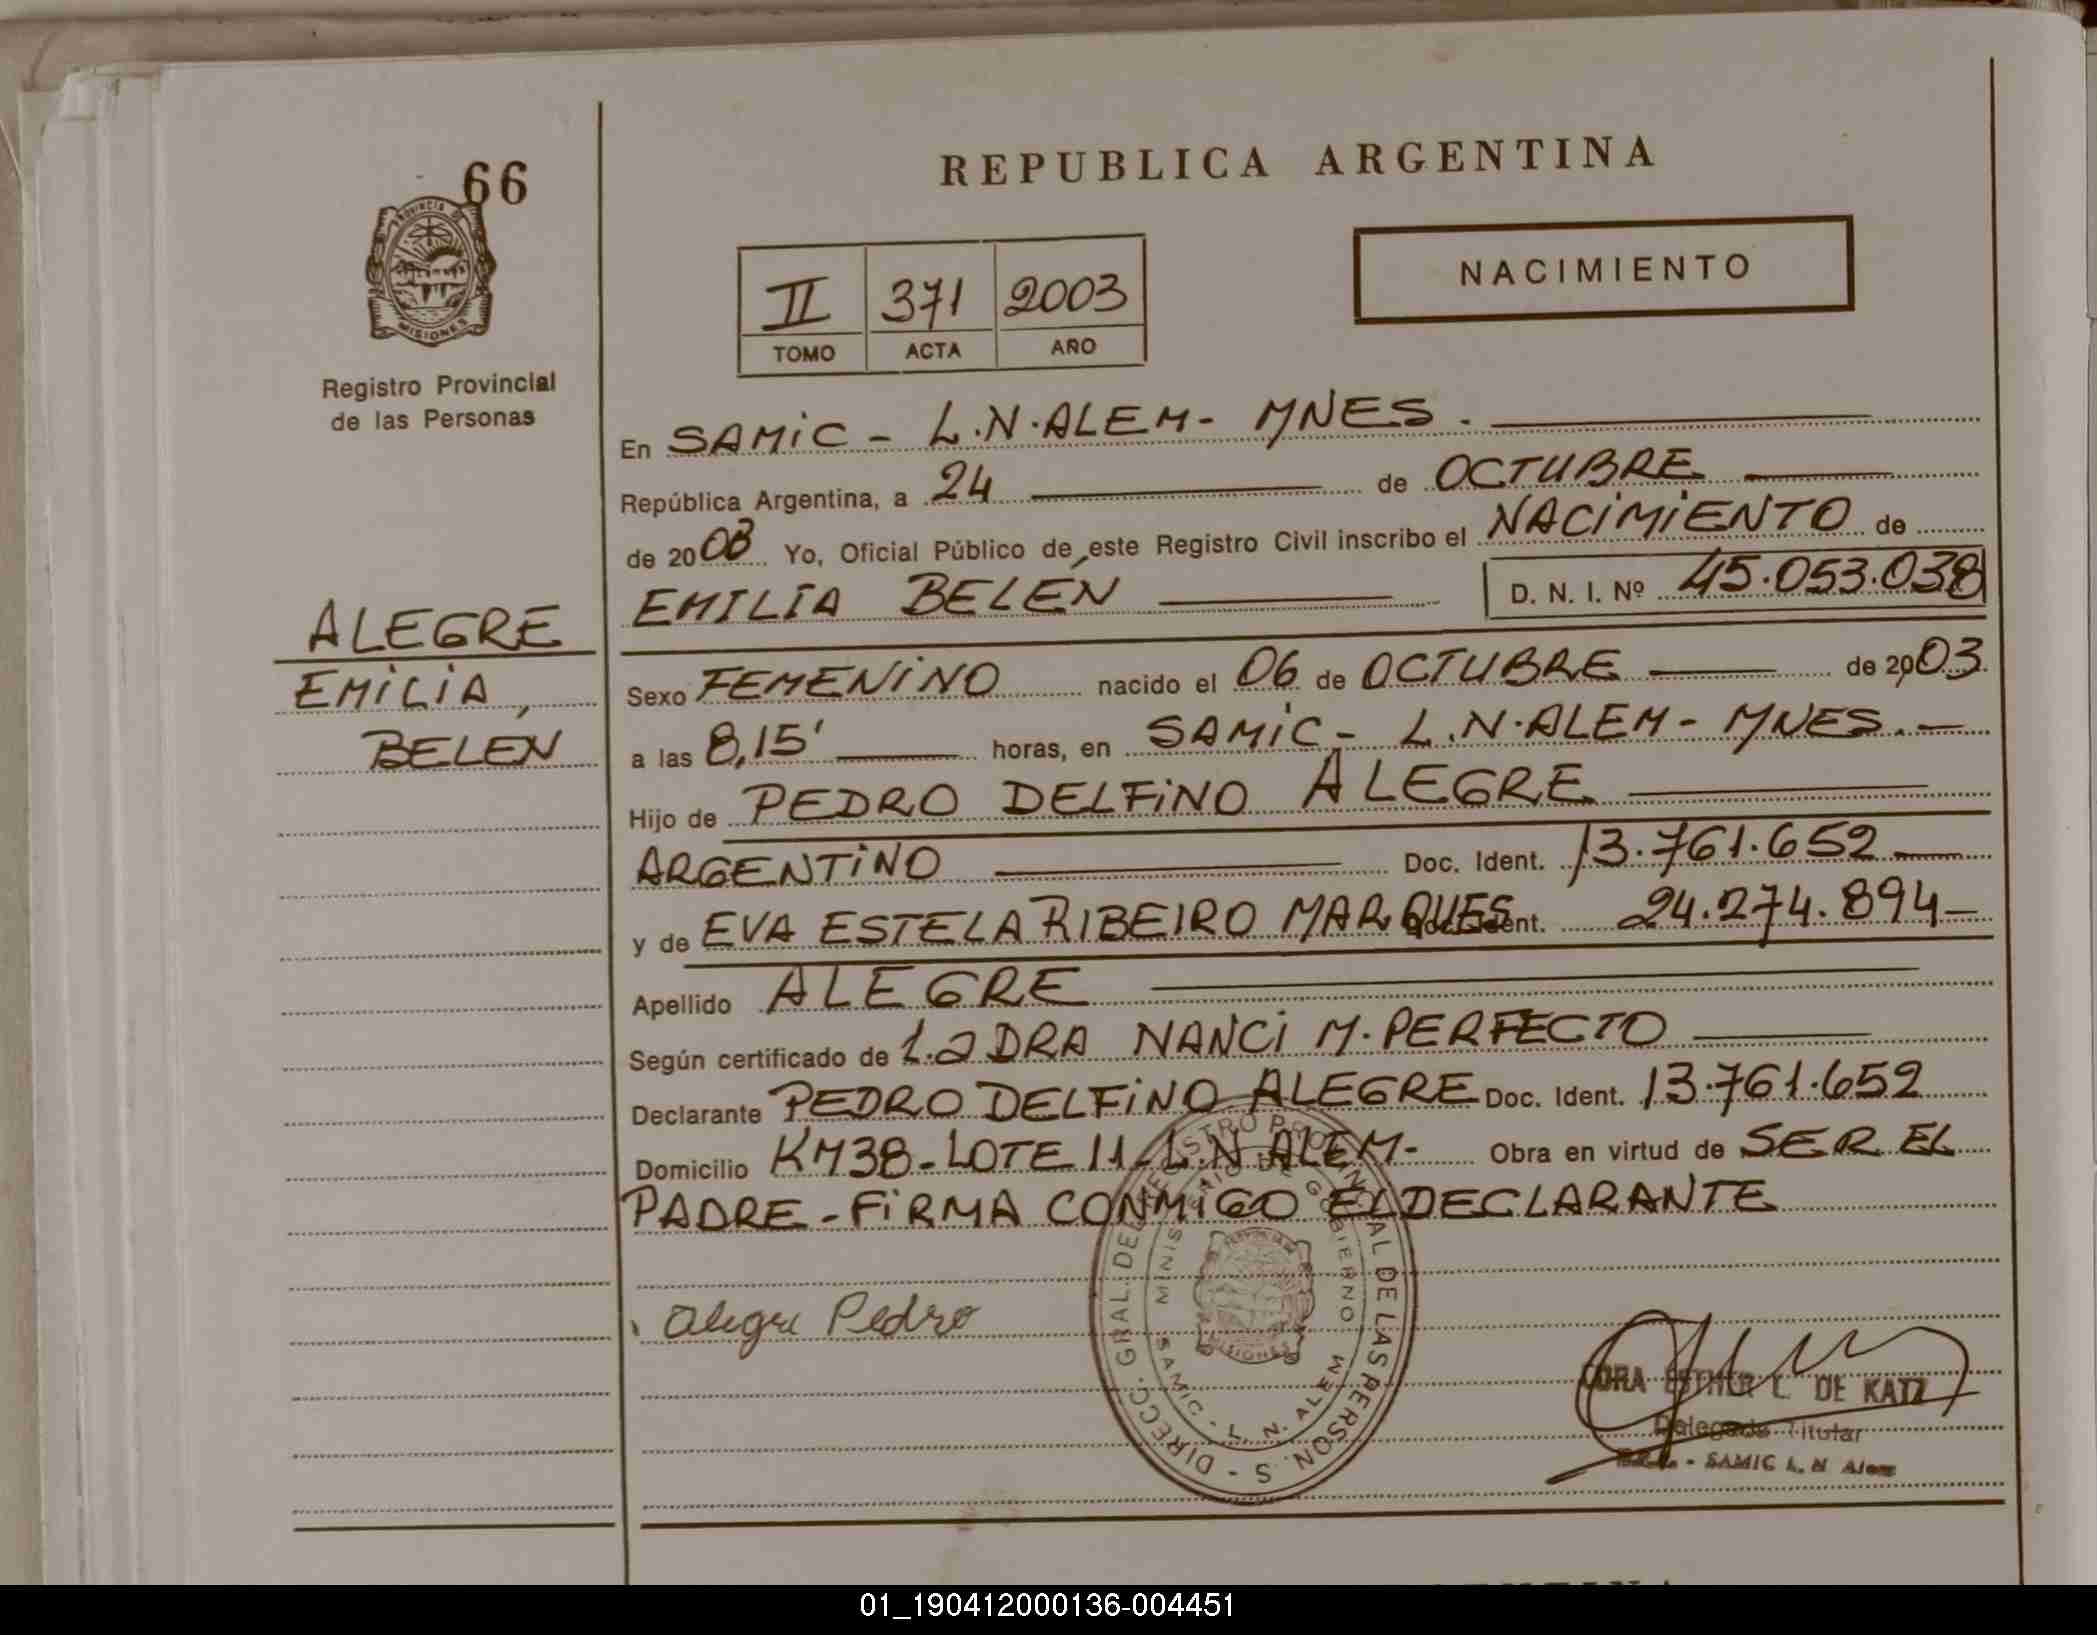 66
PROVINCIA DE
MISIONES
Registro Provincial
de las Personas
ALEGRE
EMILIA,
BELEN
REPUBLICA ARGENTINA
NACIMIENTO
II 371 2003
TOMO ACTA AÑO
En SAMIC - L.N. ALEM - MNES.
República Argentina, a 24 de OCTUBRE
de 2003 Yo, Oficial Público de este Registro Civil inscribo el NACIMIENTO de
EMILIA BELÉN D. N. I. Nº 45.053.038
Sexo FEMENINO nacido el 06 de OCTUBRE de 2003
a las 8,15' horas, en SAMIC - L.N. ALEM - MNES.
Hijo de PEDRO DELFINO ALEGRE
ARGENTINO Doc. Ident. 13.761.652
y de EVA ESTELA RIBEIRO MARQUES Doc. Ident. 24.274.894
Apellido ALEGRE
Según certificado de LA DRA NANCI M. PERFECTO
Declarante PEDRO DELFINO ALEGRE Doc. Ident. 13.761.652
Domicilio KM38 - LOTE 11 - L.N ALEM - Obra en virtud de SER EL
PADRE - FIRMA CONMIGO EL DECLARANTE
Alegre Pedro
MINISTERIO DE GOBIERNO
SAMIC - L. N. ALEM
MISIONES
CORA ESTHER L. DE KATZ
Delegada Titular
SAMIC L. N Alem
01_190412000136-004451